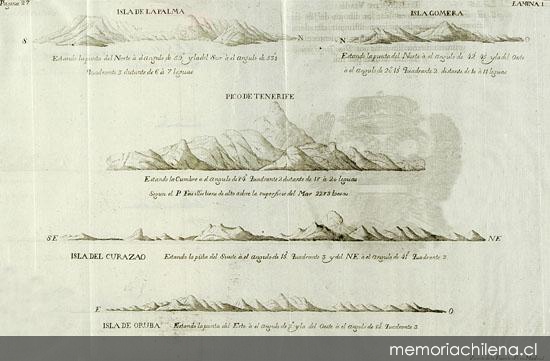 Pagina 27
LAMINA 1
ISLA DE LA PALMA
S N
Estando la punta del Norte à el Angulo de y la del Sur à el Angulo de
Quadrante 3 distante de 6 à 7 leguas
ISLA GOMERA
N O
Estando la punta del Norte à el Angulo de y la del Oeste
à el Angulo de Quadrante 2 distante de 10 à 11 leguas
PICO DE TENERIFE
Estando la Cumbre à el Angulo de Quadrante 2 distante de 18 à 20 leguas
Segun el P. Feuillée tiene de alto sobre la superficie del Mar 2213 toesas
SE NE
ISLA DEL CURAZAO
Estando la punta del Sueste à el Angulo de Quadrante 3 y del NE à el Angulo de Quadrante 2
E O
ISLA DE ORUBA
Estando la punta del Este à el Angulo de y la del Oeste à el Angulo de Quadrante 3
memoriachilena.cl